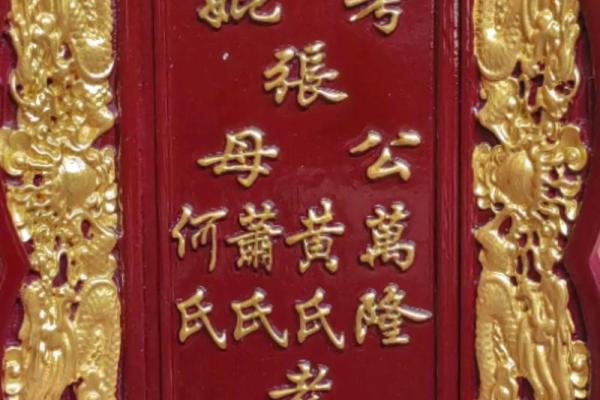 考
張
公萬隆
母
黃氏
蕭氏
何氏